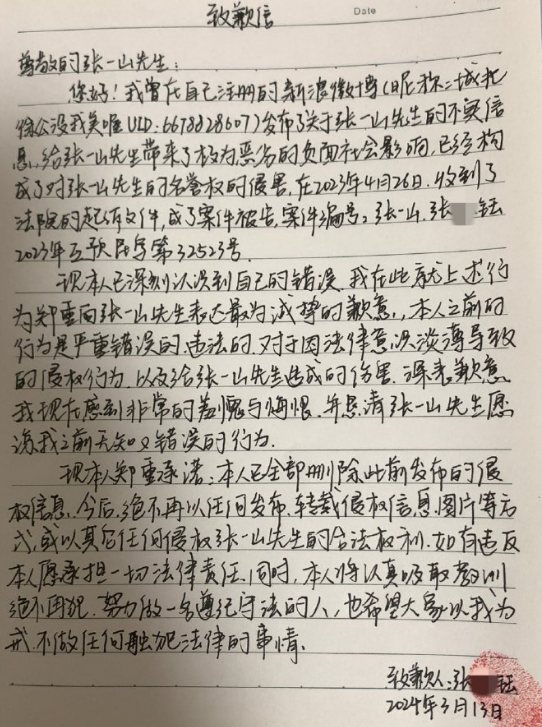 致歉信
Date
尊敬的张一山先生：
您好！我曾在自己注册的新浪微博（昵称：城北
徐公没我美唯UID：6678828607）发布了关于张一山先生的不实信
息，给张一山先生带来了极为恶劣的负面社会影响，已经构
成了对张一山先生的名誉权的侵害，在2023年4月26日，收到了
法院的起诉文件，成了案件被告，案件编号：张一山，张 钰
2023年互预民字第32523号
现本人已深刻认识到自己的错误，我在此就上述行
为郑重向张一山先生表达最为诚挚的歉意，本人之前的
行为是严重错误的、违法的，对于因法律意识淡薄导致
的侵权行为，以及给张一山先生造成的伤害，深表歉意
我现在感到非常的羞愧与悔恨，并恳请张一山先生原
谅我之前无知又错误的行为.
现本人郑重承诺，本人已全部删除此前发布的侵
权信息，今后，绝不再以任何发布、转载侵权信息、图片等方
式，或以其它任何侵权张一山先生的合法权利，如有违反
本人愿承担一切法律责任，同时，本人将认真吸取教训
绝不再犯，努力做一名遵纪守法的人，也希望大家以我为
戒，不做任何触犯法律的事情。
致歉人：张 钰
2024年3月13日